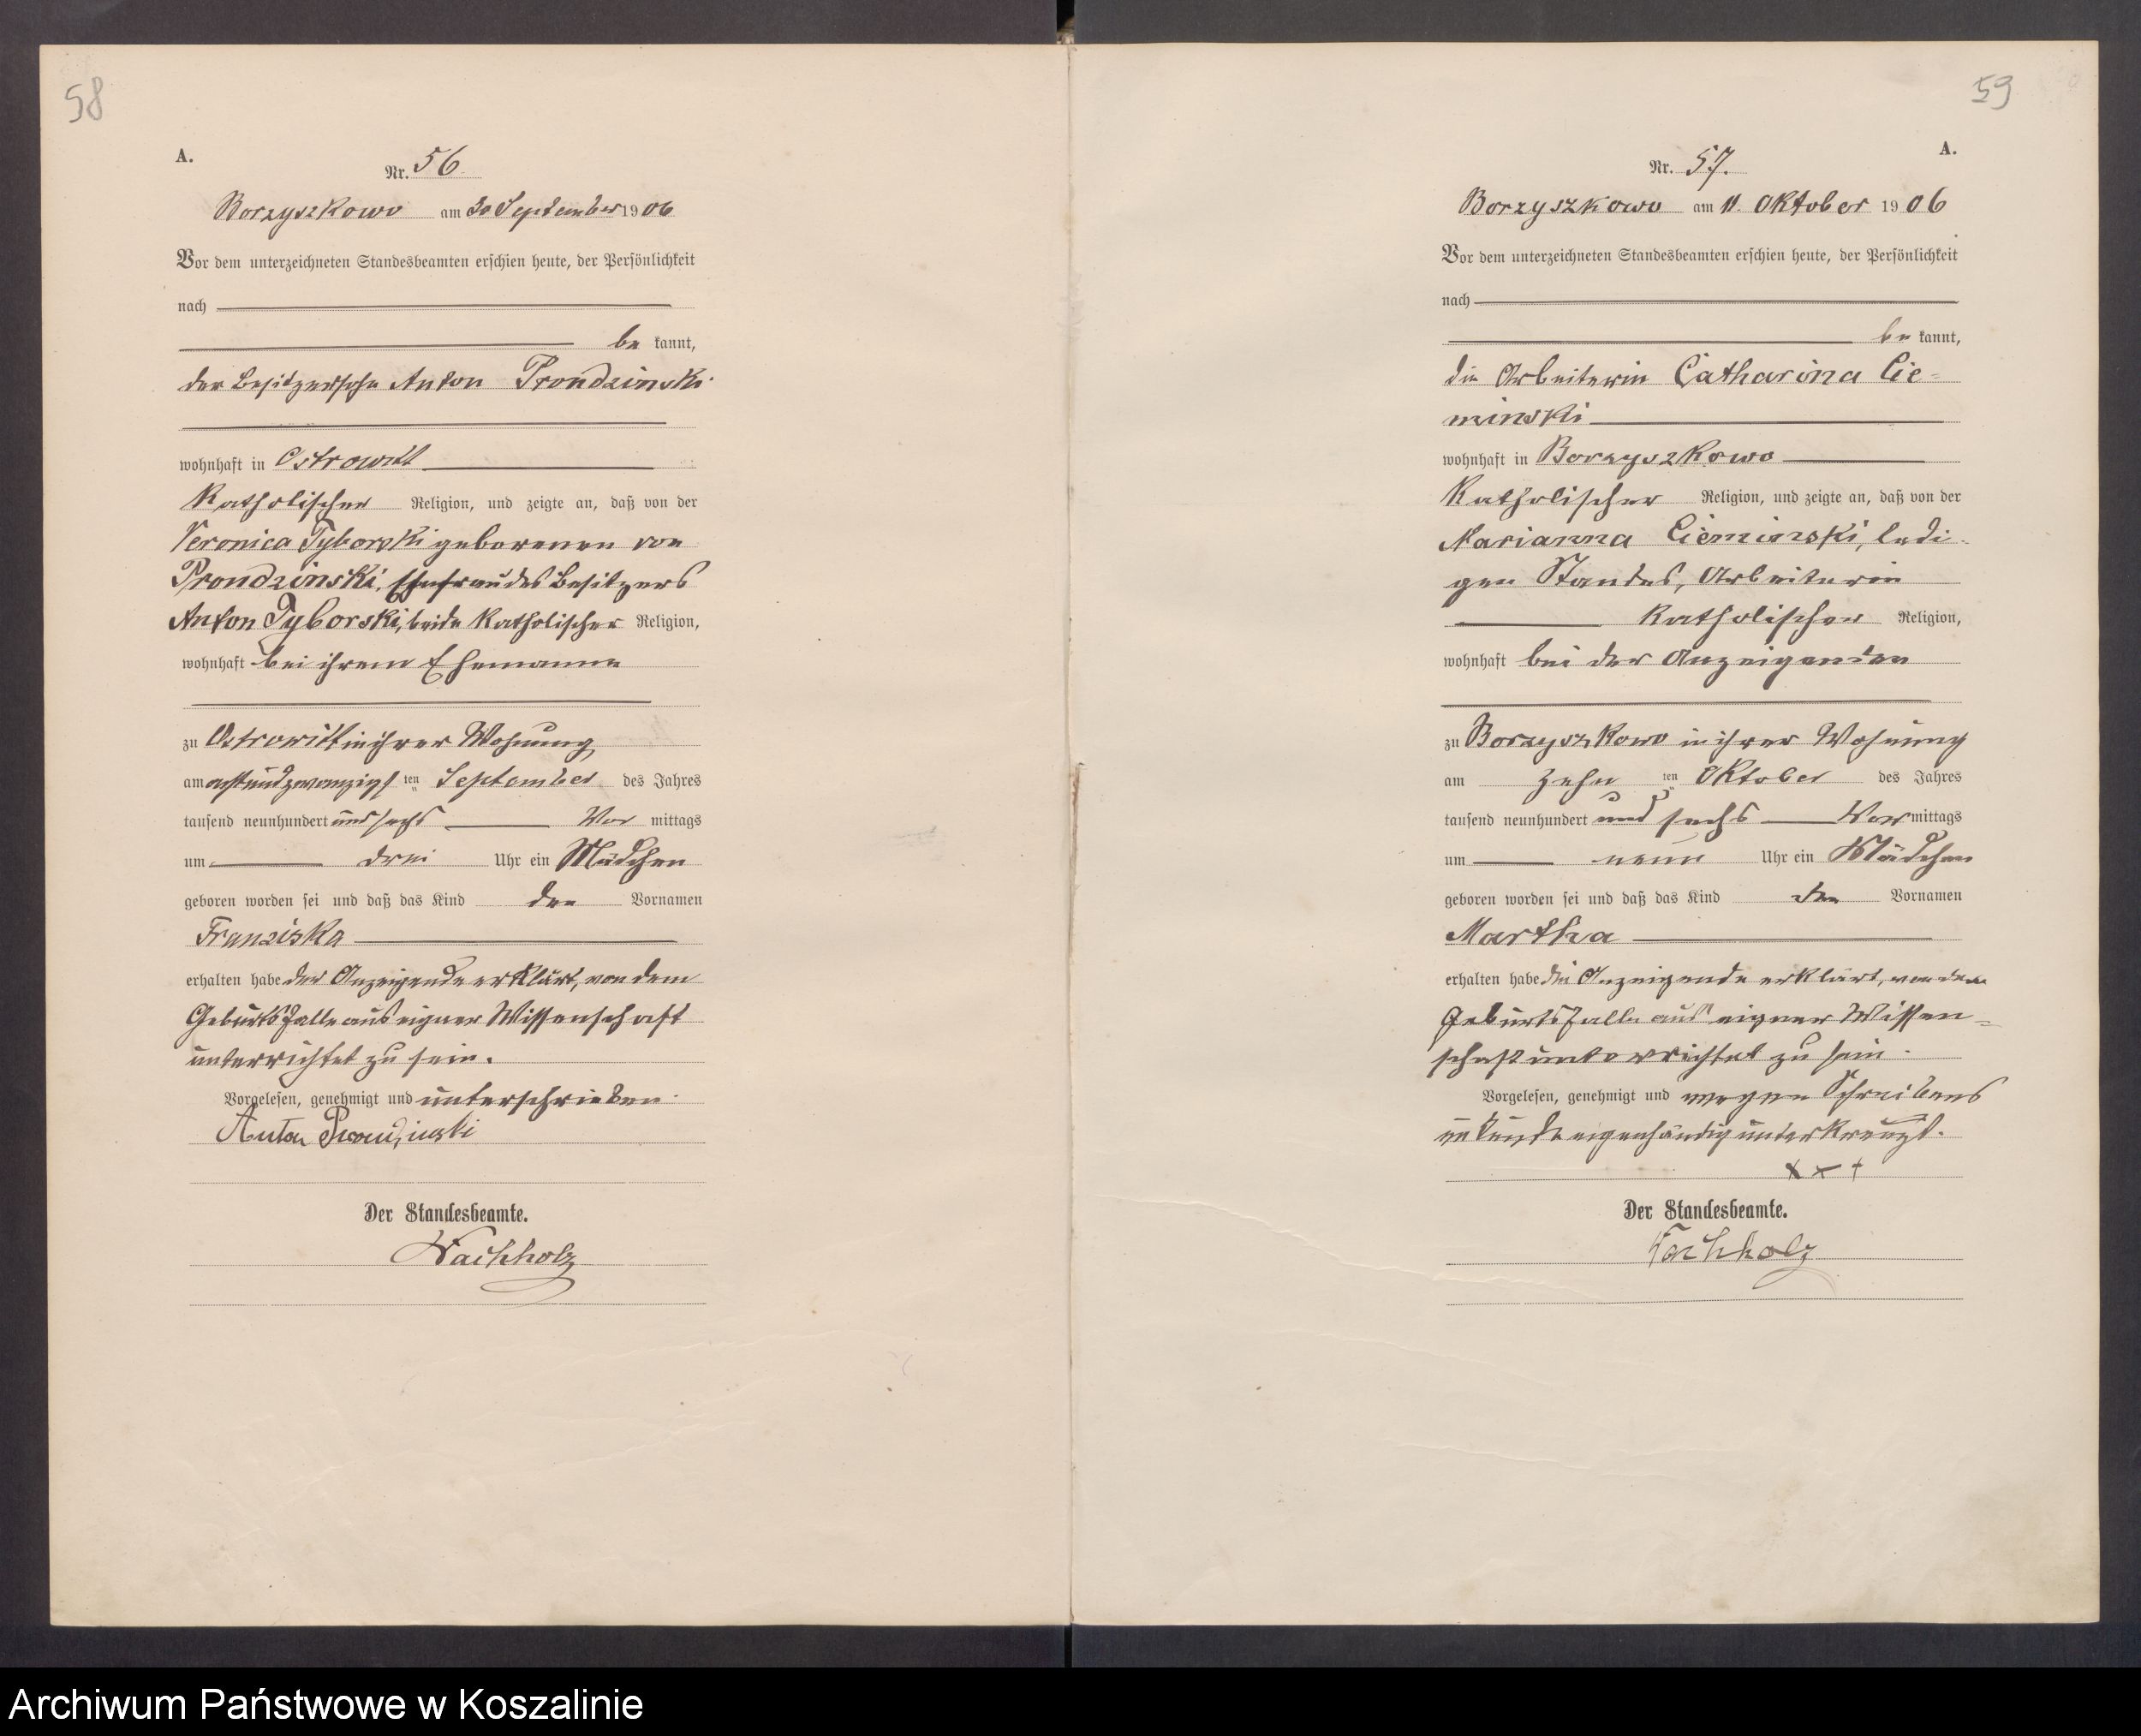 58
A.
Nr. 56
Borzyszkowo am 30 September 1906
Vor dem unterzeichneten Standesbeamten erschien heute, der Persönlichkeit
nach
be kannt,
der Besitzersohn Anton Prondzinski
wohnhaft in Ostrowitt
Katholischer Religion, und zeigte an, daß von der
Veronica Tyborski geborenen von
Prondzinski, Ehefrau des Besitzers
Anton Tyborski, beide Katholischer Religion,
wohnhaft bei ihrem Ehemanne
zu Ostrowitt in ihrer Wohnung
am achtundzwanzigsten September des Jahres
tausend neunhundert und sechs Vor mittags
um drei Uhr ein Mädchen
geboren worden sei und daß das Kind den Vornamen
Franziska
erhalten habe der Anzeigende erklärt, von dem
Geburtsfalle aus eigner Wissenschaft
unterrichtet zu sein.
Vorgelesen, genehmigt und unterschrieben.
Anton Prondzinski
Der Standesbeamte.
Wachholz
59
A.
Nr. 57.
Borzyszkowo am 11. Oktober 1906
Vor dem unterzeichneten Standesbeamten erschien heute, der Persönlichkeit
nach
be kannt,
die Arbeiterin Catharina Cie-
minski
wohnhaft in Borzyszkowo
Katholischer Religion, und zeigte an, daß von der
Marianna Cieminski, ledi-
gen Standes, Arbeiterin
Katholischer Religion,
wohnhaft bei der Anzeigenden
zu Borzyszkowo in ihrer Wohnung
am zehn ten Oktober des Jahres
tausend neunhundert und sechs Vor mittags
um neun Uhr ein Mädchen
geboren worden sei und daß das Kind den Vornamen
Martha
erhalten habe die Anzeigende erklärt, von dem
Geburtsfalle aus eigner Wissen-
schaft unterrichtet zu sein.
Vorgelesen, genehmigt und wegen Schreibens
unkunde eigenhändig unterkreuzt.
x x +
Der Standesbeamte.
Wachholz
Archiwum Państwowe w Koszalinie